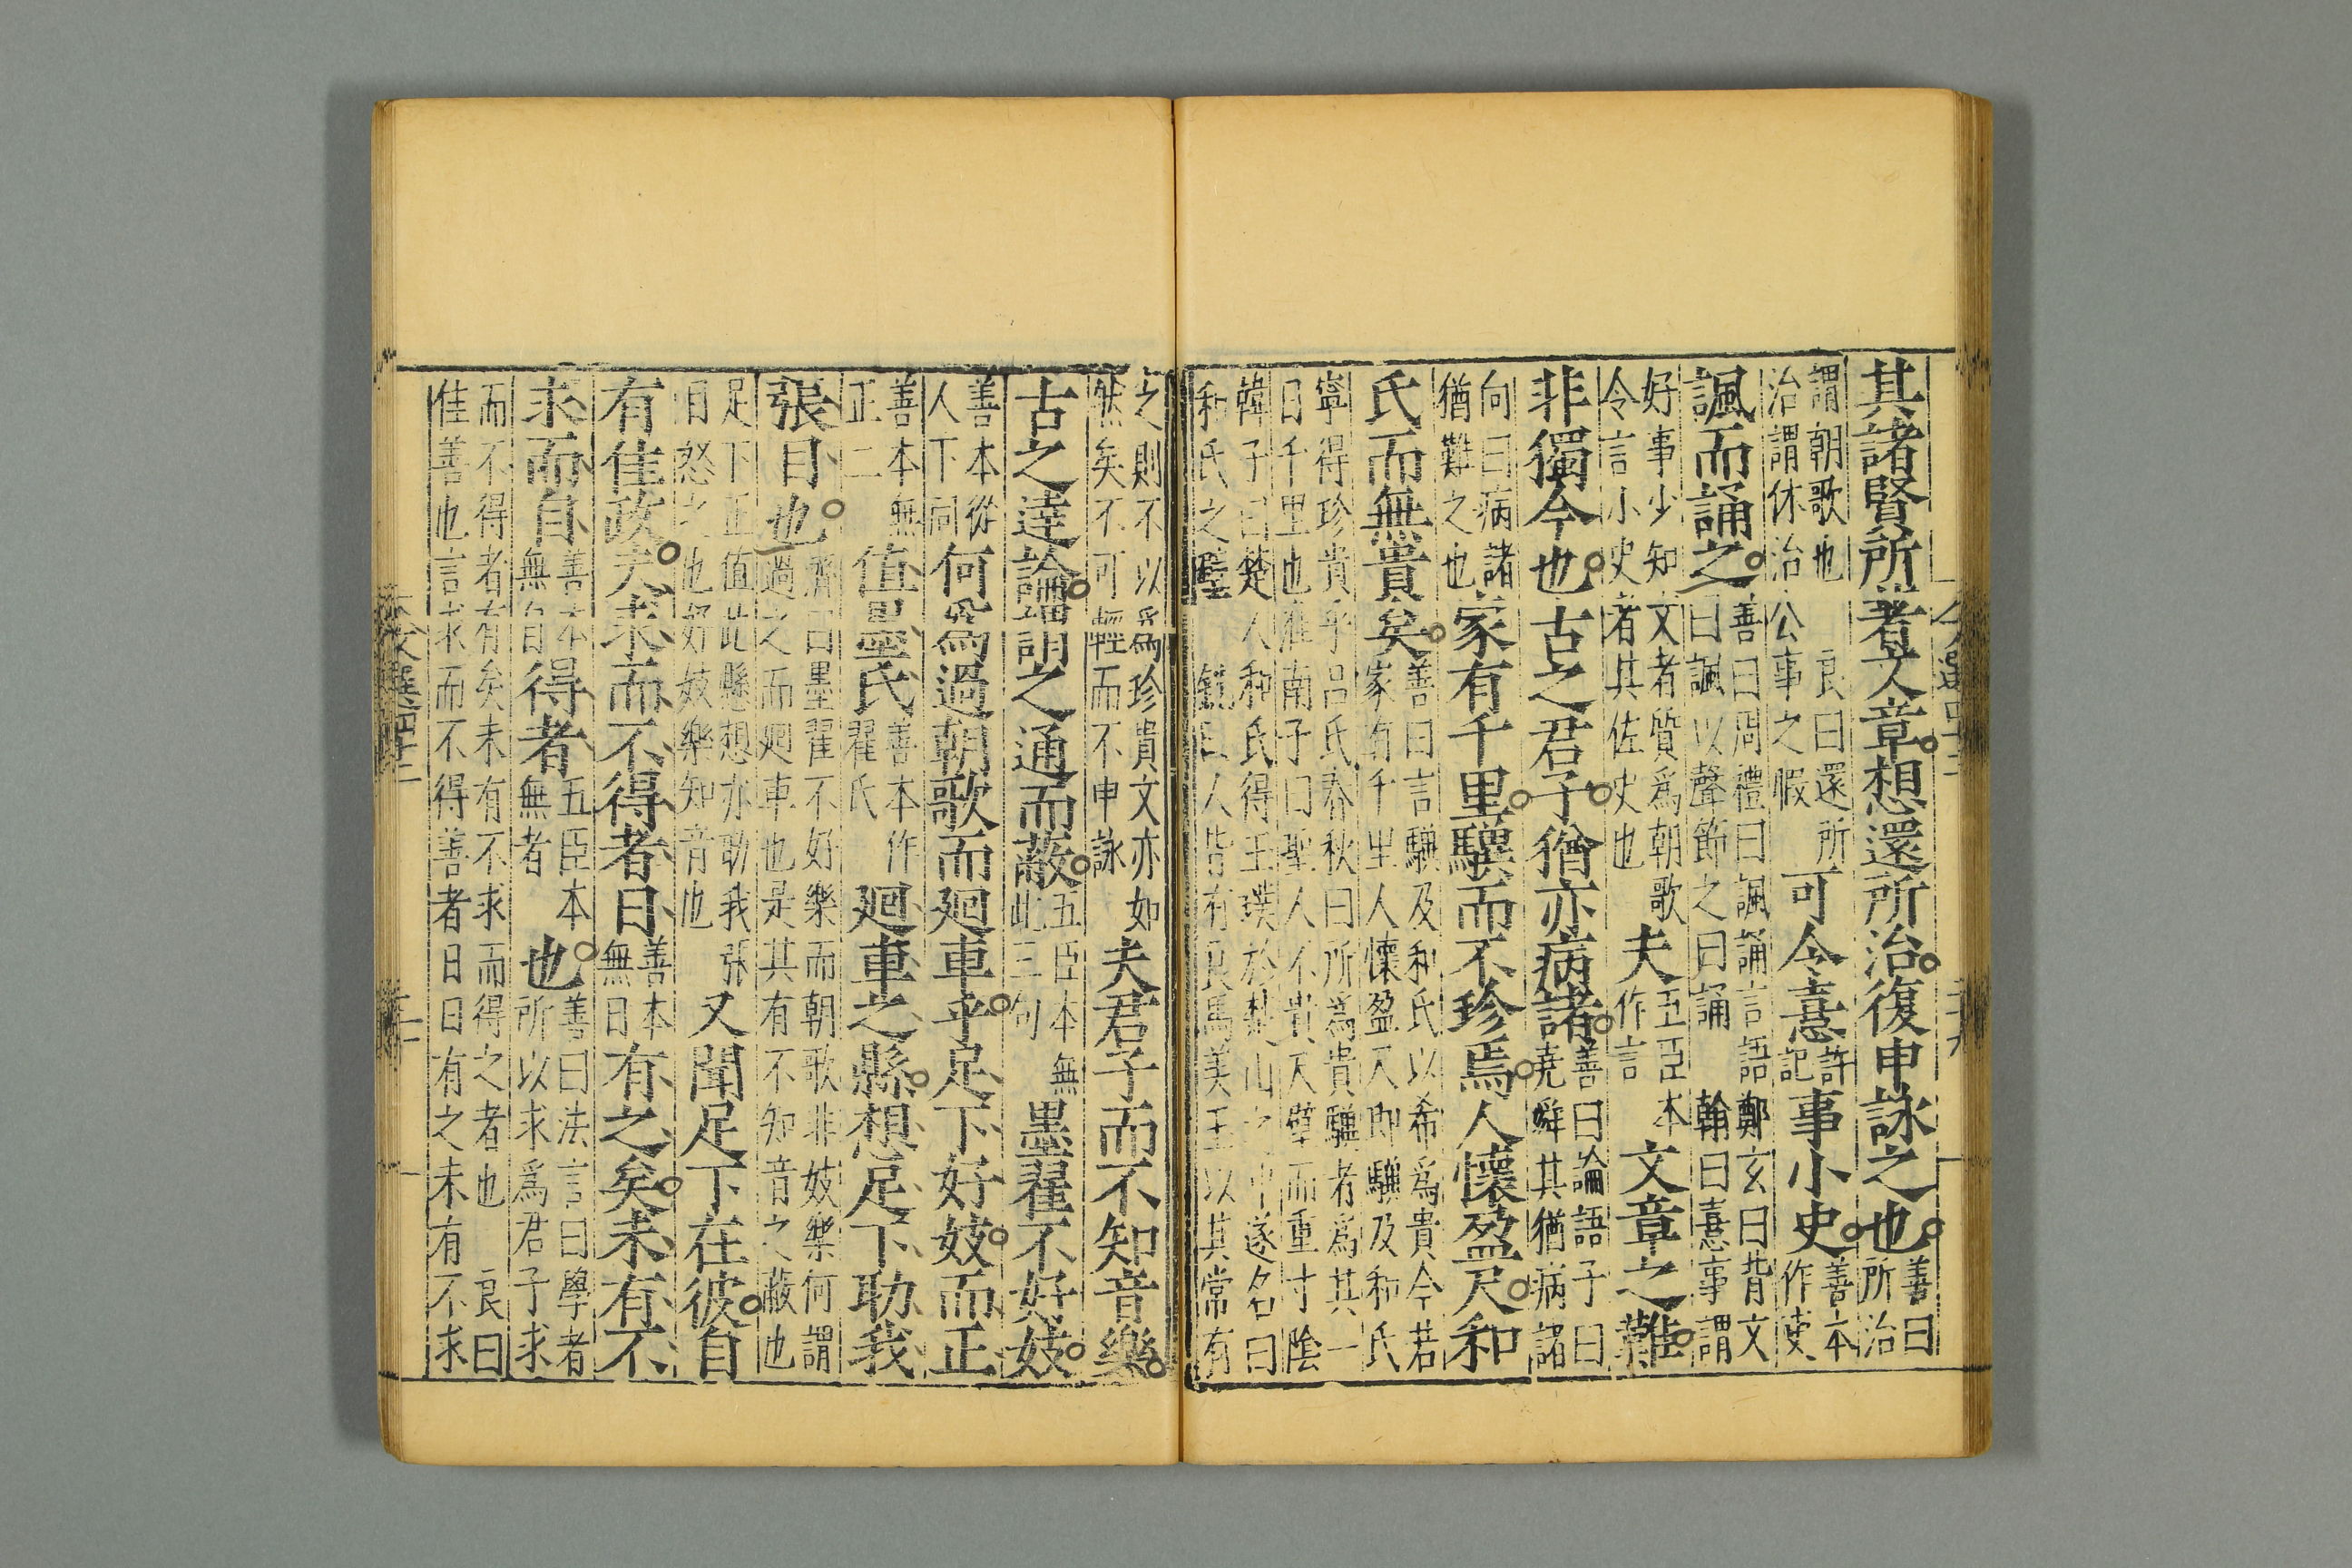 其諸賢所著文章想還所治復申詠之也善曰所治
謂朝歌也良曰還所治謂休治公事之暇可令憙許記事小史善本作吏
諷而誦之善曰周禮曰諷誦言語鄭玄曰背文曰諷以聲節之曰誦翰曰憙事謂
好事少知文者質爲朝歌令言小史者其佐史也夫五臣本作言文章之難
非獨今也古之君子猶亦病諸善曰論語子曰堯舜其猶病諸
向曰病諸猶難之也家有千里驥而不珍焉人懷盈尺和
氏而無貴矣善曰言驥及和氏以希爲貴今若家有千里人懷盈尺即驥及和氏
寧得珍貴乎呂氏春秋曰所爲貴驥者爲其一日千里也淮南子曰聖人不貴尺璧而重寸陰
韓子曰楚人和氏得玉璞於楚山之中遂名曰和氏之璧 銑曰人皆有良馬美玉以其常有
之則不以爲珍貴文亦如然矣不可輕而不申詠夫君子而不知音樂
古之達論謂之通而蔽五臣本無此三句墨翟不好妓
善本從人下同何爲過朝歌而廻車乎足下好妓而正
善本無正二值墨氏善本作翟氏廻車之縣想足下助我
張目也濟曰墨翟不好樂而朝歌非妓樂何謂過之而廻車也是其有不知音之蔽也
足下正值此縣想亦助我張目怒之也好妓樂知音也又聞足下在彼自
有佳政夫求而不得者曰善本無曰有之矣未有不
求而自善本無自得者五臣本無者也善曰法言曰學者所以求爲君子求
而不得者有矣未有不求而得之者也良曰佳善也言求而不得善者日日有之未有不求